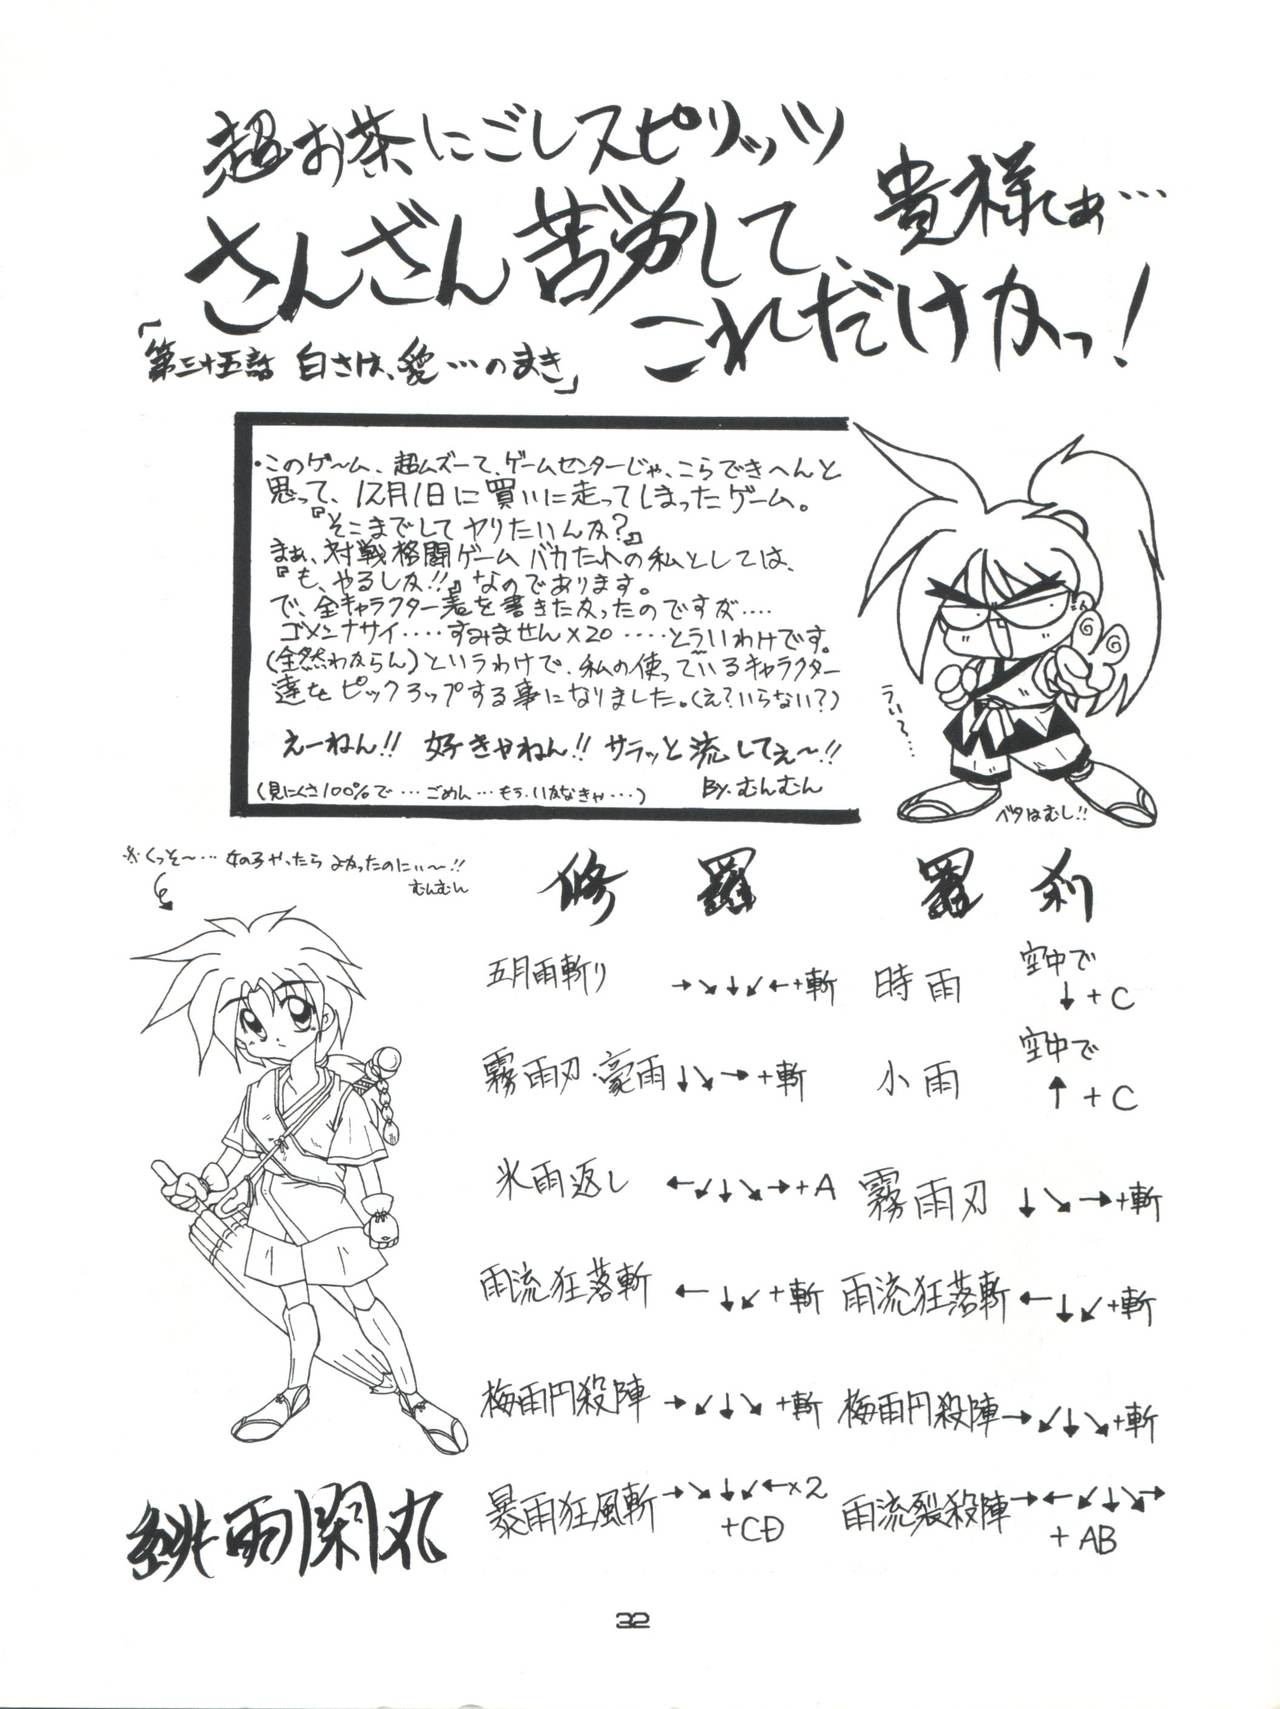 超お茶にごしスピリッツ
さんざん苦労して、
貴様らぁ…
これだけかっ!
「第三十五話 白さは、愛…のまき」
・このゲーム、超ムズーて、ゲームセンターじゃ、こらできへんと
思って、12月1日に買いに走ってしまったゲーム。
『そこまでしてヤりたいんか?』
まぁ、対戦格闘ゲームバカたれの私としては、
『も、やるしか!!』なのであります。
で、全キャラクター表を書きたかったのですが‥‥
ゴメンナサイ‥‥すみません×20‥‥とういわけです。
(全然わからん)というわけで、私の使っているキャラクター
達をピックアップする事になりました。(え?いらない?)
えーねん!! 好きやねん!! サラッと流してぇ〜!!
(見にくさ100%で…ごめん…もう、いかなきゃ…)
By.むんむん
うぃ〜…
ベタはむし!!
※くっそ〜…女の子やったらよかったのにぃ〜!!
むんむん
修羅 羅刹
五月雨斬り →↘↓↙←+斬 時雨 空中で↓+C
霧雨刃・豪雨 ↓↘→+斬 小雨 空中で↑+C
氷雨返し ←↙↓↘→+A 霧雨刃 ↓↘→+斬
雨流狂落斬 ←↓↙+斬 雨流狂落斬 ←↓↙+斬
梅雨円殺陣 →↙↓↘+斬 梅雨円殺陣 →↙↓↘+斬
暴雨狂風斬 →↘↓↙←×2+CD 雨流裂殺陣 →←↙↓↘→+AB
緋雨閑丸
32